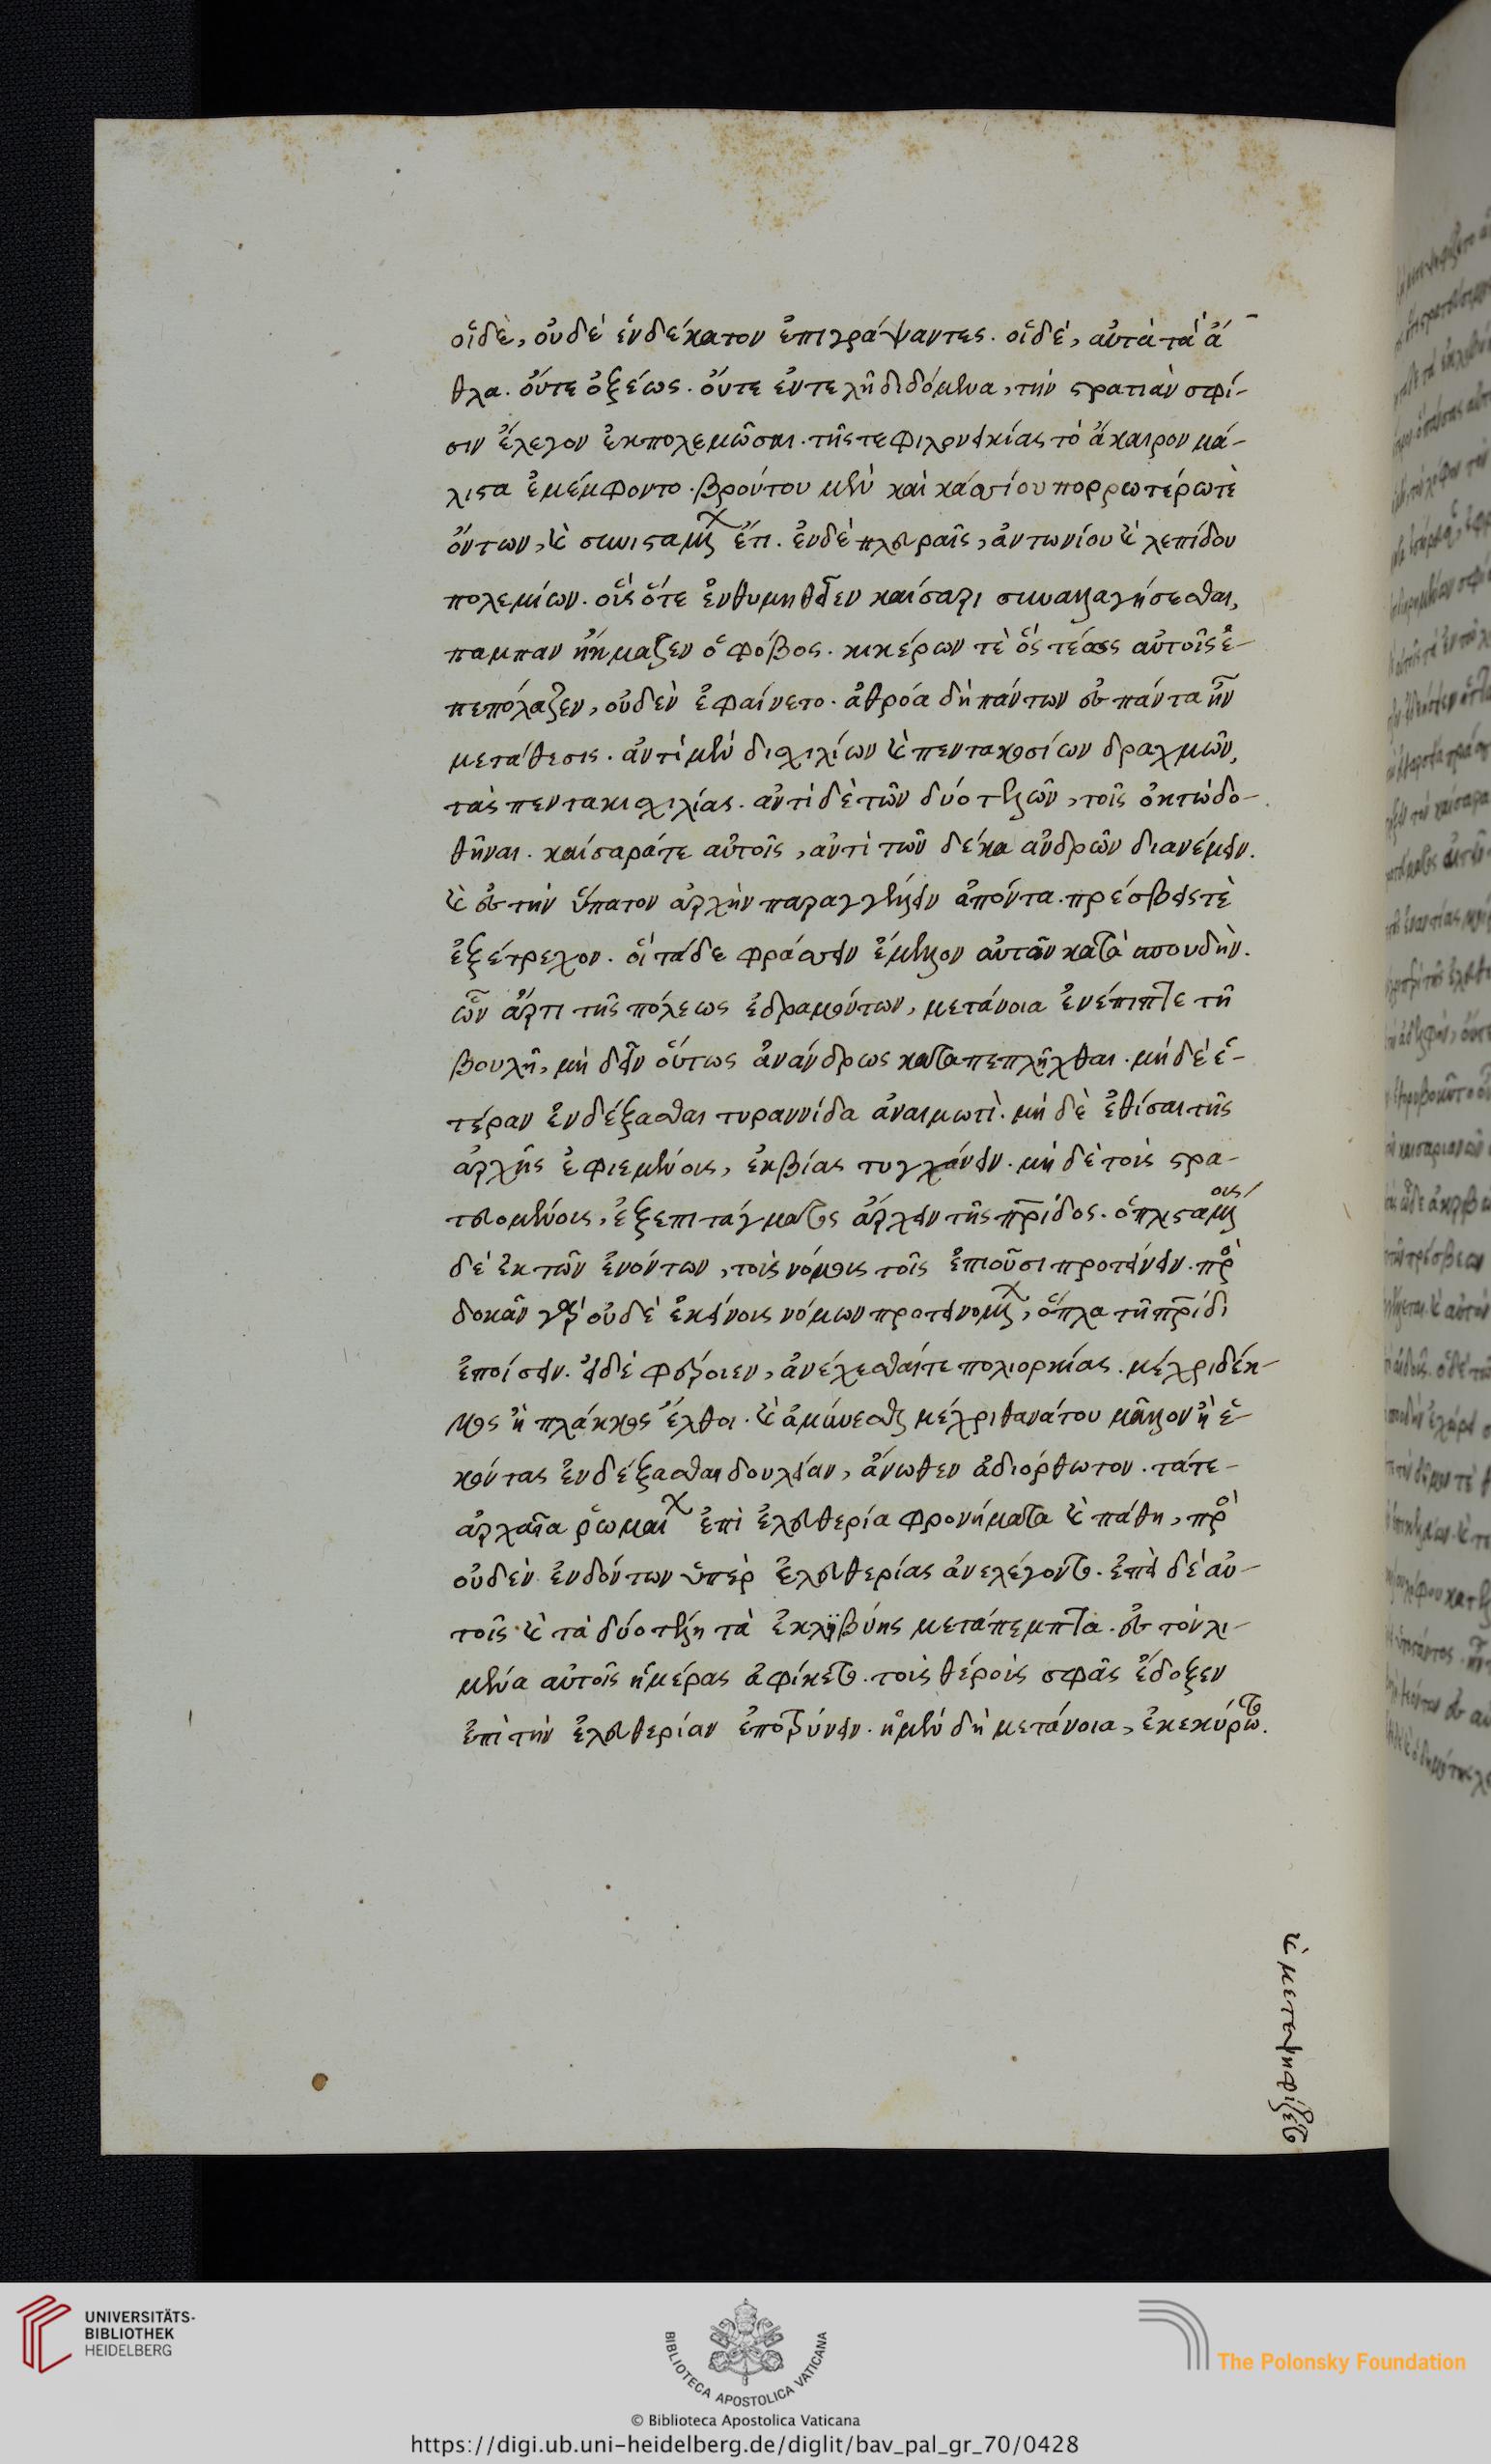 οἵδὲ, οὐδὲ ἑνδέκατον ἐπιγράψαντες. οἵδὲ, αὐτὰ τὰ ἆ
θλα. οὔτε ὀξέως. οὔτε ἐντελῆ διδόμενα, τὴν στρατιὰν σφί-
σιν ἔλεγον ἐκπολεμῶσαι. τῆς τε φιλονεικίας τὸ ἄκαιρον μά-
λιστα ἐμέμφοντο. βρούτου μὲν καὶ κασσίου πορρωτέρωτὲ
ὄντων, καὶ συνισταμένων ἔτι. ἐνδὲ πλευραῖς, ἀντωνίου καὶ λεπίδου
πολεμίων. οἷς ὅτε ἐνθυμηθεῖεν καίσαρι συναλλαγήσεσθαι,
παμπαν ἤκμαζεν ὁ φόβος. κικέρων τὲ ὅς τέως αὐτοῖς ἐ-
πεπόλαζεν, οὐδὲν ἐφαίνετο. ἀθρόα δὴ πάντων ἐς πάντα ἦν
μετάθεσις. ἀντὶ μὲν δισχιλίων καὶ πεντακοσίων δραχμῶν,
τὰς πεντακισχιλίας. ἀντὶ δὲ τῶν δύο τελῶν, τοῖς ὀκτὼ δο-
θῆναι. καίσαράτε αὐτοῖς, ἀντὶ τῶν δέκα ἀνδρῶν διανέμειν.
καὶ ἐς τὴν ὕπατον ἀρχὴν παραγγέλλειν ἀπόντα. πρέσβειςτὲ
ἐξέτρεχον. οἳ τάδε φράσσειν ἔμελλον αὐτῶν κατὰ σπουδὴν.
ὧν ἄρτι τῆς πόλεως ἐδραμόντων, μετάνοια ἐνέπιπτε τῆ
βουλῆ, μὴ δεῖν οὕτως ἀνάνδρως καταπεπλῆχθαι. μὴ δὲ ἑ-
τέραν ἐνδέξασθαι τυραννίδα ἀναιμωτὶ. μὴ δὲ ἐθίσαι τῆς
ἀρχῆς ἐφιεμένοις, ἐκβίας τυγχάνειν. μὴ δὲ τοὶς στρα-
τευομένοις, ἐξεπιτάγματος ἄρχειν τῆς πρίδος. ὁπλισταμένοις
δὲ ἐκ τῶν ἐνόντων, τοὶς νόμοις τοῖς ἐπιοῦσι προτείνειν. προσ
δοκᾶν γὰρ οὐδὲ ἐκείνοις νόμων προτεινομένων, ὅπλα τῆ πρίδι
ἐποίσειν. εἰδὲ φέροιεν, ἀνέχεσθαίτε πολιορκίας. μέχριδέκ-
μος ἢ πλάκκος ἔλθοι. καὶ ἀμύνεσθαι μέχρι θανάτου μᾶλλον ἢ ἑ-
κόντας ἐνδέξασθαι δουλείαν, ἄνωθεν ἀδιόρθωτον. τάτε-
ἀρχαῖα ῥωμαίων ἐπὶ ἐλευθερία φρονήματα καὶ πάθη, πρὸς
οὐδὲν ἐνδόντων ὑπὲρ ἐλευθερίας ἀνελέγοντο. ἐπεὶ δὲ αὐ-
τοῖς καὶ τὰ δύο τέλη τὰ ἐκλϊβύης μετάπεμπτα. ἐς τὸν λι-
μένα αὐτοῖς ἡμέρας ἀφίκετο. τοὶς θέροὶς σφᾶς ἔδοξεν
ἐπὶ τὴν ἐλευθερίαν ἐποτρύνειν. ἡμὲν δὴ μετάνοια, ἐκεκύρωτο.
καὶ μετεψηφίζετο
UNIVERSITÄTS-
BIBLIOTHEK
HEIDELBERG
BIBLIOTECA APOSTOLICA VATICANA
The Polonsky Foundation
© Biblioteca Apostolica Vaticana
https://digi.ub.uni-heidelberg.de/diglit/bav_pal_gr_70/0428